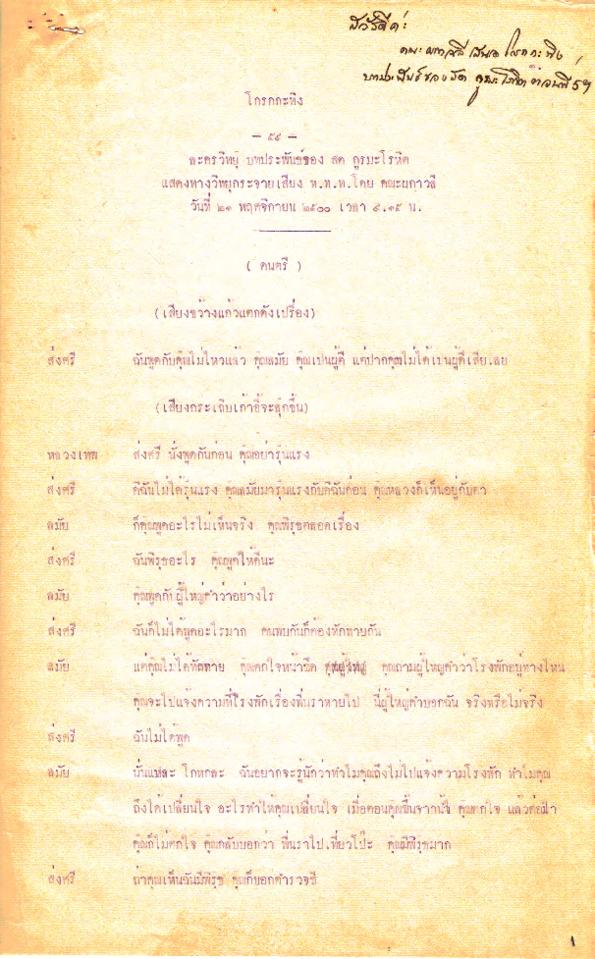 สวัสดีค่ะ
คณะผกาวลี เสนอ โกรกกะทิง
บทประพันธ์ของ สด กูรมะโรหิต ตอนที่ ๕๙
โกรกกะทิง
— ๕๙ —
ละครวิทยุ บทประพันธ์ของ สด กูรมะโรหิต
แสดงทางวิทยุกระจายเสียง ท.ท.ท. โดย คณะผกาวลี
วันที่ ๒๑ พฤศจิกายน ๒๕๐๐ เวลา ๙.๑๕ น.
( ดนตรี )
(เสียงขว้างแก้วแตกดังเปรื่อง)
ส่งศรี ฉันพูดกับคุณไม่ไหวแล้ว คุณสมัย คุณเป็นผู้ดี แต่ปากคุณไม่ได้เป็นผู้ดีเสียเลย
(เสียงกระเถิบเก้าอี้จะลุกขึ้น)
หลวงเทพ ส่งศรี นั่งพูดกันก่อน คุณอย่ารุนแรง
ส่งศรี ดิฉันไม่ได้รุนแรง คุณสมัยมารุนแรงกับดิฉันก่อน คุณหลวงก็เห็นอยู่กับตา
สมัย ก็คุณพูดอะไรไม่เห็นจริง คุณพิรุธตลอดเรื่อง
ส่งศรี ฉันพิรุธอะไร คุณพูดให้ดีนะ
สมัย คุณพูดกับผู้ใหญ่คำว่าอย่างไร
ส่งศรี ฉันก็ไม่ได้พูดอะไรมาก คนพบกันก็ต้องทักทายกัน
สมัย แต่คุณไม่ได้ทักทาย คุณตกใจหน้าซีด คุณถามผู้ใหญ่คำว่าโรงพักอยู่ทางไหน
คุณจะไปแจ้งความที่โรงพักเรื่องพี่นราหายไป นี่ผู้ใหญ่คำบอกฉัน จริงหรือไม่จริง
ส่งศรี ฉันไม่ได้พูด
สมัย นั่นแหละ โกหกละ ฉันอยากจะรู้นักว่าทำไมคุณถึงไม่ไปแจ้งความโรงพัก ทำไมคุณ
ถึงได้เปลี่ยนใจ อะไรทำให้คุณเปลี่ยนใจ เมื่อตอนคุณขึ้นจากน้ำ คุณตกใจ แล้วต่อมา
คุณก็ไม่ตกใจ คุณกลับบอกว่า พี่นราไปเที่ยวโป๊ะ คุณมีพิรุธมาก
ส่งศรี ถ้าคุณเห็นฉันมีพิรุธ คุณก็บอกตำรวจซี
๑